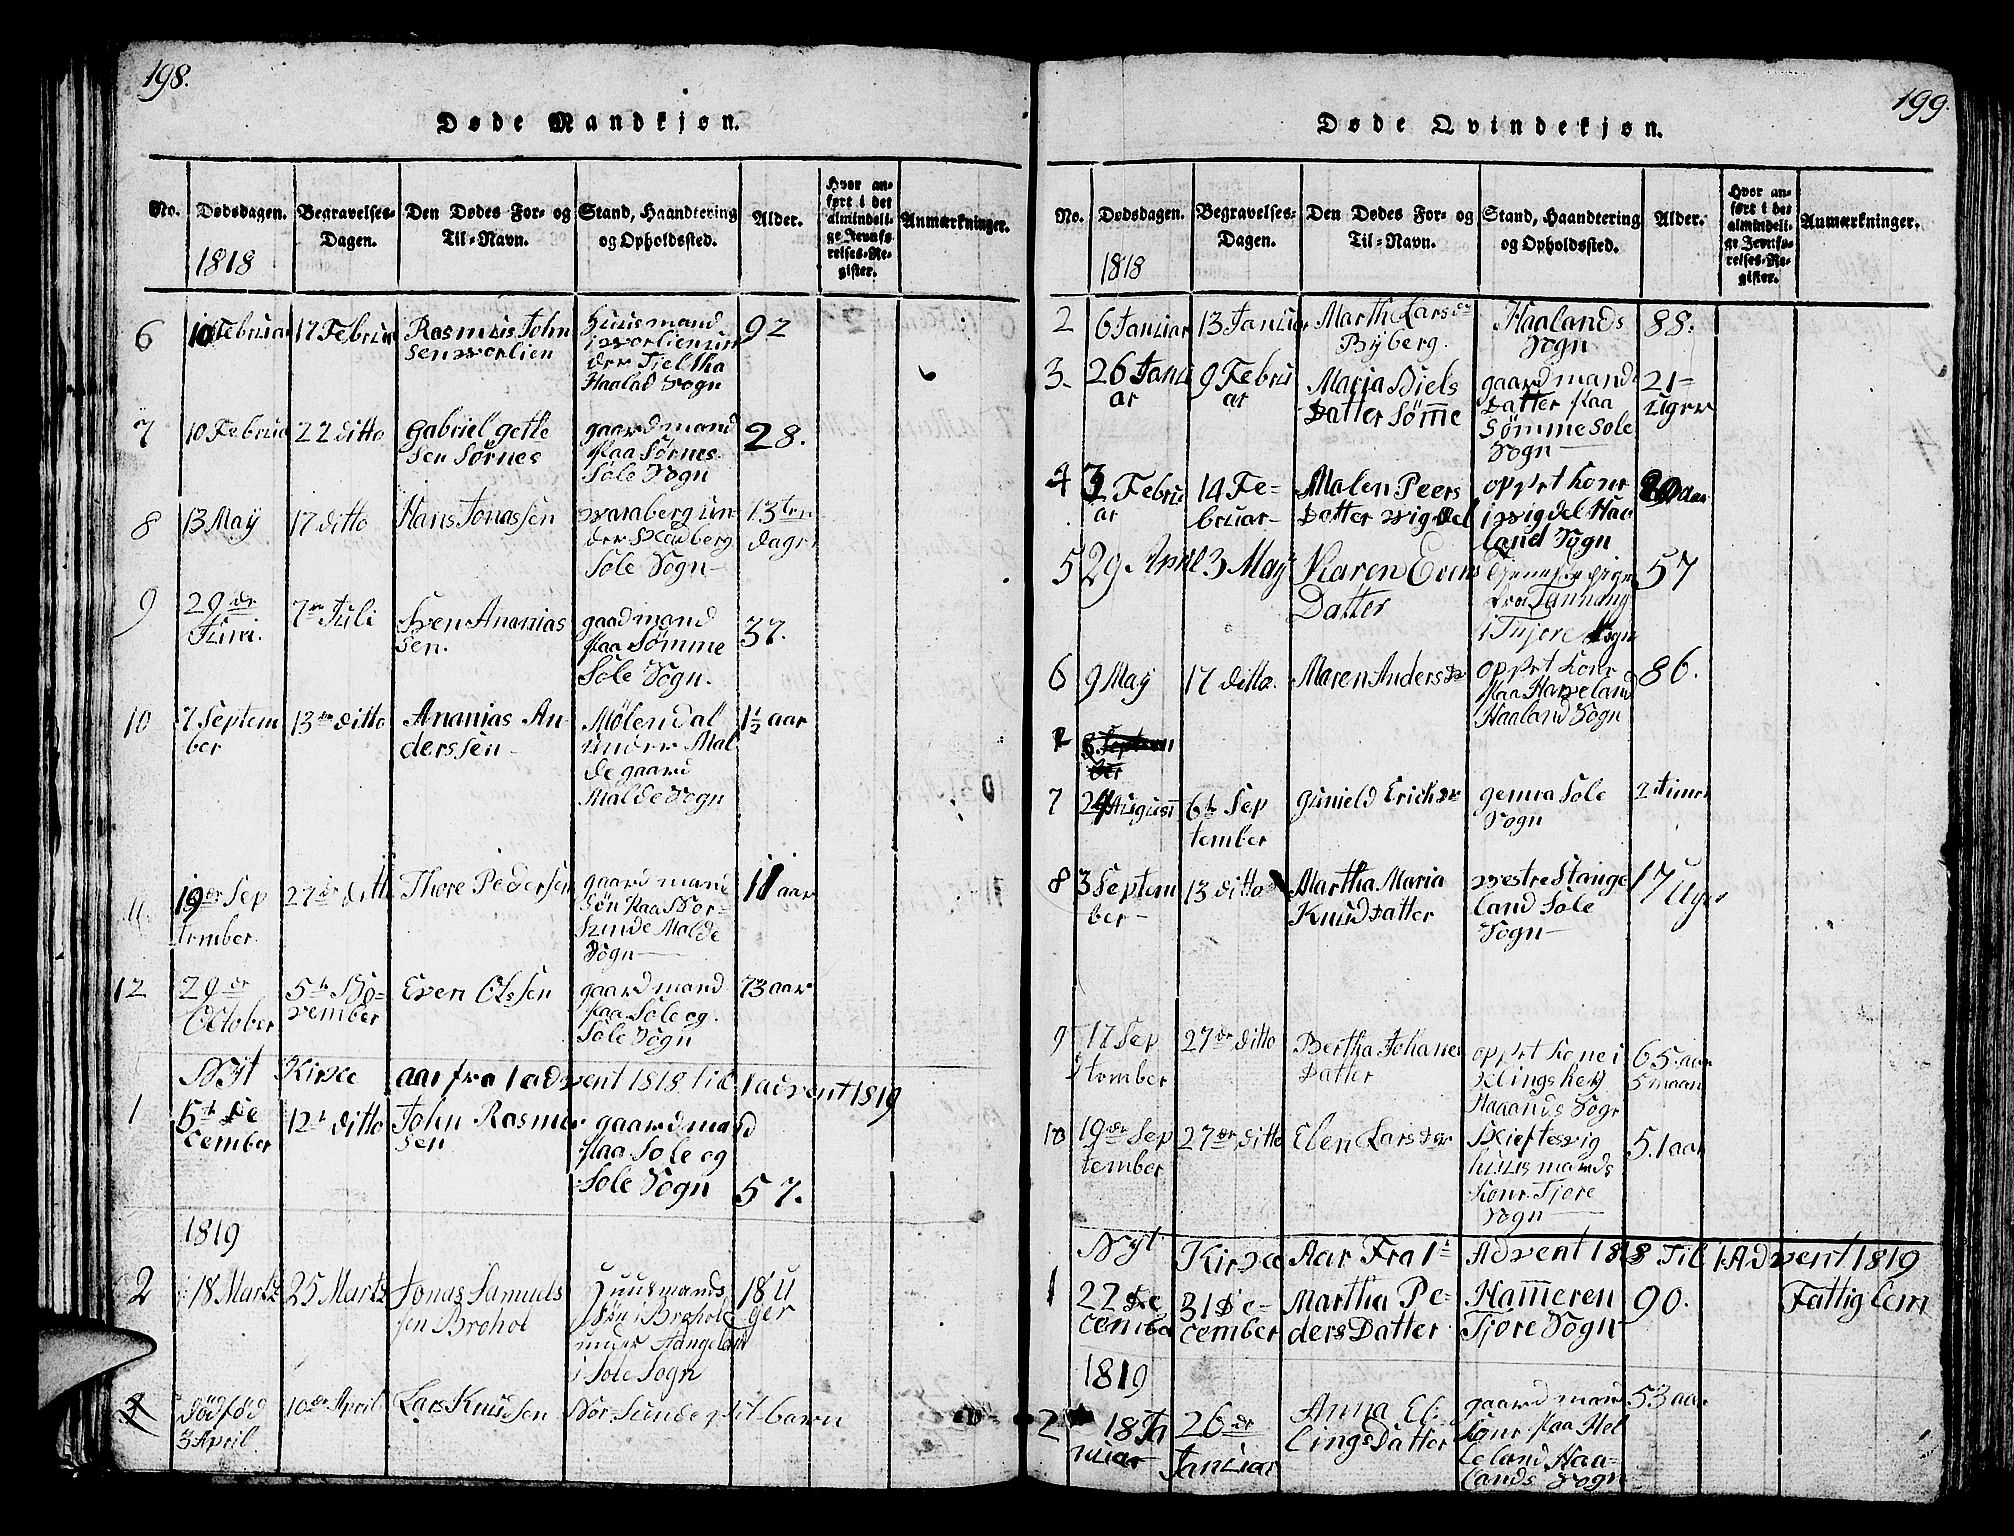 198.
Døde Mandkjøn.
No.
Dødsdagen.
1818
Begravelses-
Dagen.
Den Dødes For- og
Til-Navn.
Stand, Haandtering
og Opholdssted.
Alder.
Hvor an-
ført i det
almindeli-
ge Jevnfø-
relses-Re-
gister.
Anmærkninger.
6
10 Februar
17 Februar
Rasmus John
sen
Huusmand
der Tieltha
Haalad Sogn
92
7
10 Februa
22 ditto
Gabriel gette
sen Sørnes
gaardmand
paa Sørnes
Sole Sogn
28.
8
13 Maÿ
17 ditto
Hans Jonassen
waraberg un-
der Stadberg
Sole Sogn
13 ten
dager
9
29 de
Juni.
7 de Juli
Sven Ananias
sen.
gaadmand
paa Sømme
Sole Sogn.
37.
10
7 Septem
ber
13 de ditto
Ananias An-
derssen
Mølendal
under Mal
de gaard
Malde Sogn
1½ aar
11.
19 de Sep
tember.
27 de ditto
Thore Pedersen
gaard mand
søn paa Nor-
sunde Malde
Sogn
11 aar
12
29 de
October
5 te No-
vember
Even Olssen
gaardmand
paa Sole og
Sole Sogn
73 aar
Nÿt Kirke aar fra 1 advent 1818 til 1 advent 1819
1
5 te De
cember
12 te ditto
John Rasmus
sen
gaardmand
paa Sole og
Sole Sogn
57.
1819
2
18 Martz
25 Martz
Jonas Samuels
sen Brohol
Huusmands
Søn i Brohole
under Stangeland
i Sole Sogn
18 U
ger
dødfød
3 April.
10 de April
Lars Knudsen
Nor Sunde
barn
199.
Døde Qvindekjøn.
No.
Dødsdagen.
1818
Begravelses-
Dagen.
Den Dødes For- og
Til-Navn.
Stand, Haandtering
og Opholdssted.
Alder.
Hvor an-
ført i det
almindeli-
ge Jevnfø-
relses-Re-
gister.
Anmærkninger.
2
6 Januar
13 Januar
Marth Lars dr
Bÿberg.
Haalands
Sogn
88.
3.
26 Janu
ar
9 Febru
ar
Maria Niels
Datter Sømme
gaardmands
Datter paa
Sømme Sole
Sogn
21
Uger
4
3 Febru
ar
14 Fe-
bruar
Malen Peers
Datter wigdel
opprt Kone
i wigdel Haa
land Sogn
5
29 April
3 Maÿ
Karen Evens
Datter
Tananger
i Tiore Sogn
57
6
9 Maÿ
17 ditto.
Maren Anders dr
opprt Kone
paa Harveland
Haaland Sogn
86.
7
24 August
6 te Sep
tember
Gunield Erichs dr
Gemra Sole
Sogn
2 timer
8
3 Septem
ber
13 ditto
Martha Maria
Knuddatter
westre Stange
land Sole
Sogn
17 Uger
9
17 Sep
tember
27 de ditto
Bertha Johanes
Datter
opprt Kone i
Haaands Sogn
65 aar
5 maan
10
19 de Sep
tember
27 de ditto
Elen Lars dr
Skieftesvig
huusmands
Kone Tjore
Sogn
51 aar
Nÿt Kirke Aar Fra 1 te Advent 1818 Til 1 Advent 1819
1
22 De
cember
31 De-
cember
Martha Pe-
ders Datter
Hameren
Tjore Sogn
90.
Fattig lem
1819
2
18 Ja
nuar
26 de
Januar
Anna El-
lings Datter
gaardmand
Kone paa Hel
leland Haa-
lands Sogn
53 aar